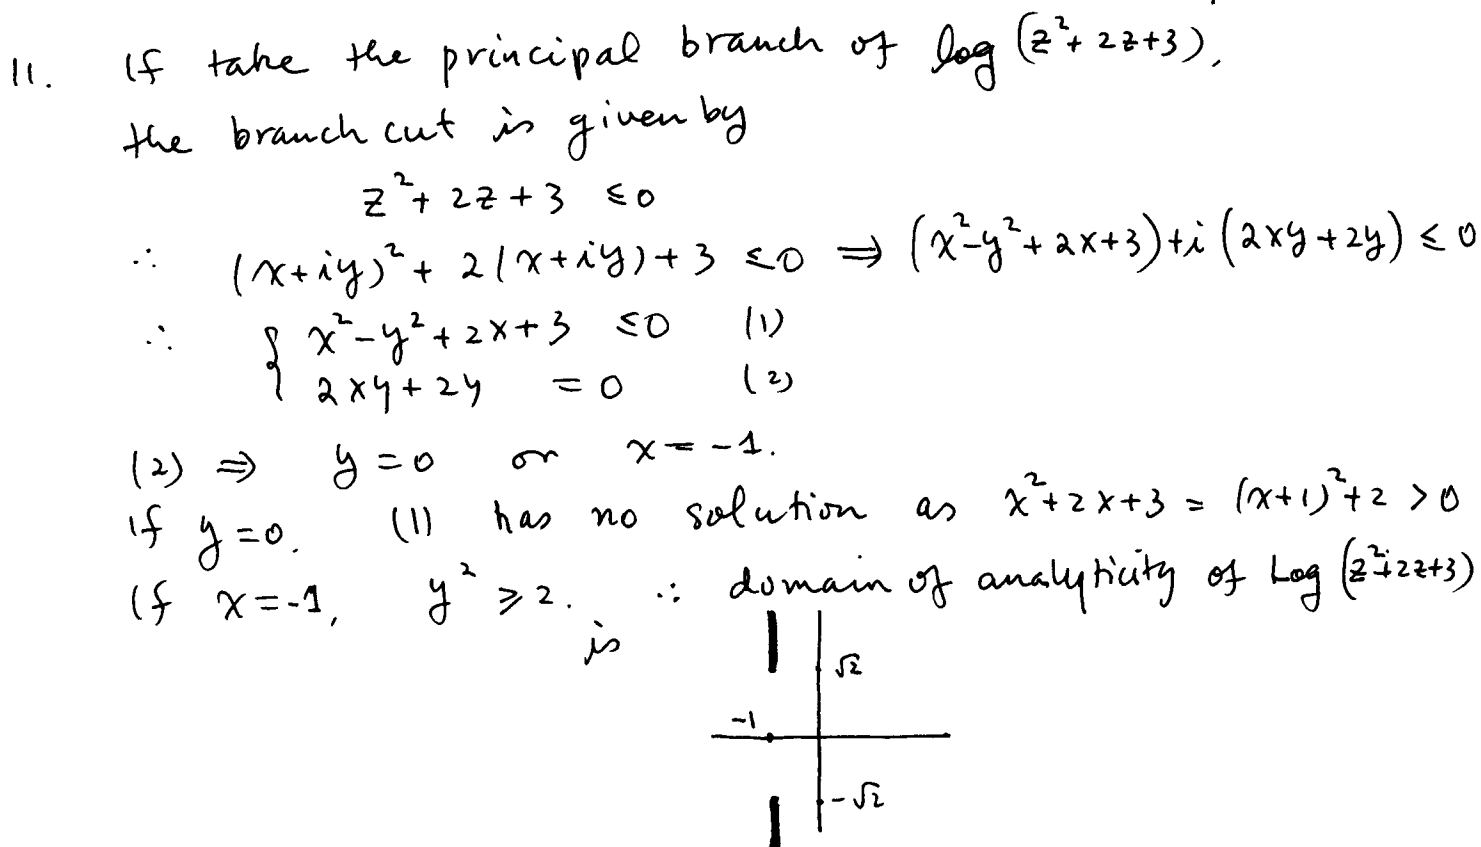 11. If take the principal branch of log (z²+ 2z+3),
the branch cut is given by
z²+ 2z+3 ≤0
∴ (x+iy)²+ 2(x+iy)+3 ≤0 ⇒ (x²-y²+2x+3)+i(2xy+2y) ≤0
∴ { x²-y²+2x+3 ≤0 (1)
2xy+2y =0 (2)
(2) ⇒ y=0 or x=-1.
if y=0. (1) has no solution as x²+2x+3 = (x+1)²+2 >0
If x=-1, y² ≥2. ∴ domain of analyticity of Log (z²+2z+3)
is
√2
-1
-√2